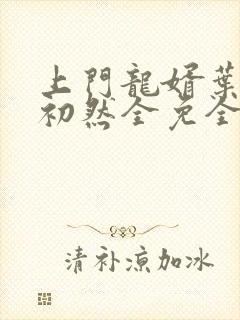 上門龍婿葉
初然全免全
清补凉加冰